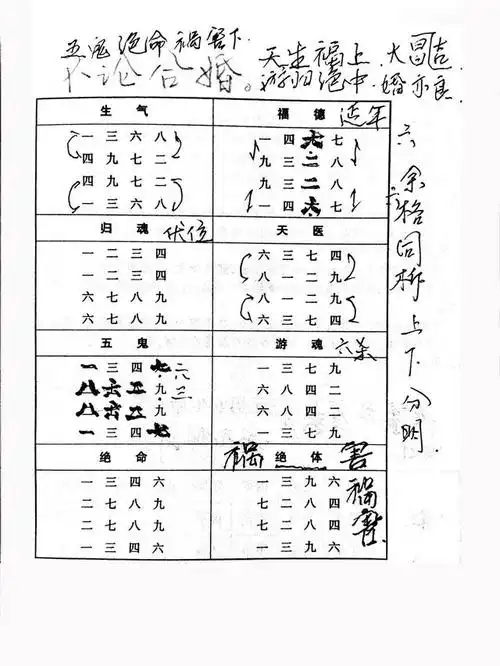 五鬼绝命祸害下
不论合婚。
天生福上 大昌吉
游归绝中 婚亦良
六余格同断上下分明
生气
一 三 六 八
四 九 七 二
四 九 七 二
一 三 六 八
福德 延年
一 四 六 七
九 三 二 八
九 三 二 八
一 四 六 七
归魂 伏位
一 二 三 四
一 二 三 四
六 七 八 九
六 七 八 九
天医
六 三 七 四
八 一 二 九
八 一 二 九
六 三 七 四
五鬼
一 三 四 七
八 六 二 九
八 六 二 九
一 三 四 七
游魂 六煞
一 三 七 九
六 八 四 二
六 八 四 二
一 三 七 九
绝命
一 三 四 六
二 七 八 九
二 七 八 九
一 三 四 六
祸 绝体 害
一 三 九 六
二 七 八 四
七 二 八 四
一 三 九 六
祸害